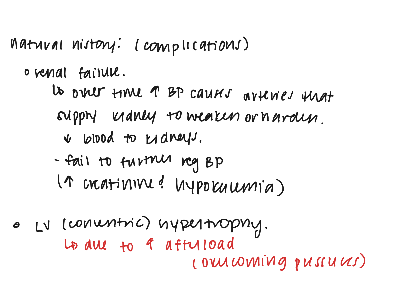 natural history: (complications)
○ renal failure.
↳ over time ↑ BP causes arteries that
supply kidney to weaken or harden.
↓ blood to kidneys.
- fail to further reg BP
(↑ creatinine & hypokalemia)
○ LV (concentric) hypertrophy.
↳ due to ↑ afterload
(overcoming pressures)